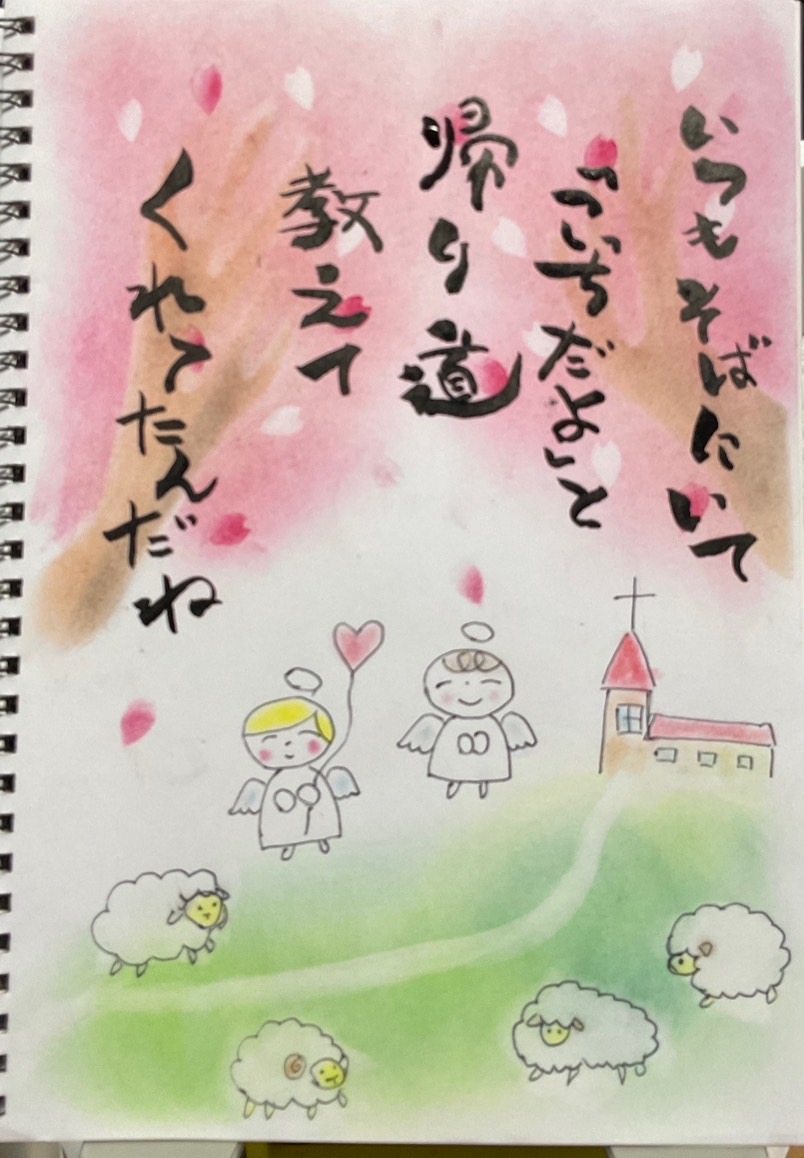 いつもそばにいて
「こっちだよ」と
帰り道
教えて
くれてたんだね